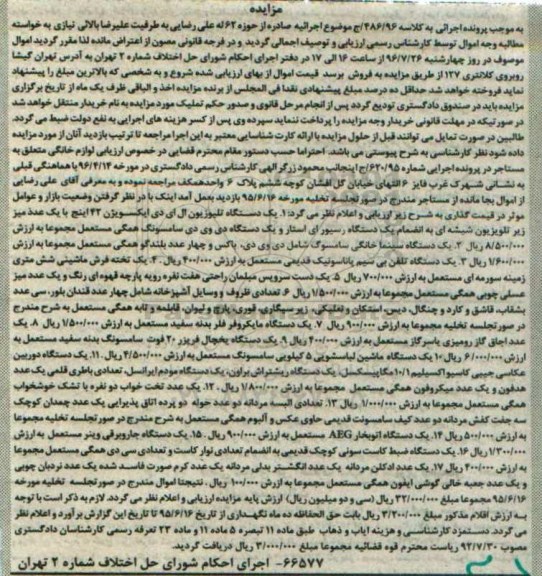 مزایده
به موجب پرونده اجرائی به کلاسه ۴۸۶/۹۶/ج موضوع اجرائیه صادره از حوزه ۶۲ له علی رضایی به طرفیت علیرضا بالائی نیازی به خواسته
مطالبه وجه اموال توسط کارشناس رسمی ارزیابی و توصیف اجمالی گردید و در فرجه قانونی مصون از اعتراض مانده لذا مقرر گردید اموال
موصوف در روز چهارشنبه ۹۶/۷/۲۶ از ساعت ۱۶ الی ۱۷ در دفتر اجرای احکام شورای حل اختلاف شماره ۲ تهران به آدرس تهران گیشا
روبروی کلانتری ۱۳۷ از طریق مزایده به فروش برسد قیمت اموال از بهای ارزیابی شده شروع و به شخصی که بالاترین مبلغ را پیشنهاد
نماید فروخته خواهد شد حداقل ده درصد مبلغ پیشنهادی نقدا فی المجلس از برنده مزایده اخذ و الباقی ظرف یک ماه از تاریخ برگزاری
مزایده باید در صندوق دادگستری تودیع گردد پس از انجام مرحل قانونی و صدور حکم تملیک مورد مزایده به نام خریدار منتقل خواهد شد
در صورتیکه در مهلت قانونی خریدار وجه مزایده را پرداخت ننماید سپرده وی پس از کسر هزینه های اجرایی به نفع دولت ضبط می گردد.
طالبین در صورت تمایل می توانند قبل از حلول مزایده با ارائه کارت شناسایی معتبر به این اجرا مراجعه تا ترتیب بازدید آنان از مورد مزایده
داده شود نظر کارشناسی به شرح پیوستی می باشد. احتراما حسب دستور مقام محترم قضایی در خصوص ارزیابی لوازم خانگی متعلق به
مستاجر در پرونده اجرایی شماره ۶۲۰/۹۵/ج اینجانب محمود زرگر الهی کارشناس رسمی دادگستری در مورخه ۹۶/۴/۱۴ با هماهنگی قبلی
به نشانی شهرک غرب فاز ۶ انتهای خیابان گل افشان کوچه ششم پلاک ۶ واحد همکف مراجعه نموده و به معرفی آقای علی رضایی
از اموال بجا مانده از مستاجر مندرج در صورتجلسه تخلیه مورخه ۹۵/۶/۱۶ بازدید بعمل آمد اینک با در نظر گرفتن وضعیت بازار و عوامل
موثر در قیمت گذاری به شرح زیر ارزیابی و اعلام نظر می گردد: ۱. یک دستگاه تلیوزیون ال ای دی ایکسویژن ۴۲ اینچ با یک عدد میز
زیر تلویزیون شیشه ای به انضمام یک دستگاه رسیور ای استار و یک دستگاه دی وی دی سامسونگ همگی مستعمل مجموعا به ارزش
۸/۵۰۰/۰۰۰ ریال ۲. یک دستگاه سینما خانگی سامسونگ شامل دی وی دی، باکس و چهار عدد بلندگو همگی مستعمل مجموعا به ارزش
۱/۶۰۰/۰۰۰ ریال ۳. یک دستگاه تلفن بی سیم پاناسونیک قدیمی مستعمل به ارزش ۴۰۰/۰۰۰ ریال. ۴. یک تخته فرش ماشینی شش متری
زمینه سورمه ای مستعمل به ارزش ۷۰۰/۰۰۰ ریال ۵. یک دست سرویس مبلمان راحتی هفت نفره رویه پارچه قهوه ای رنگ و یک عدد میز
عسلی چوبی همگی مستعمل مجموعا به ارزش ۱/۵۰۰/۰۰۰ ریال ۶. تعدادی ظروف و وسایل آشپزخانه شامل چهار عدد قندان بلور، سی عدد
بشقاب، قاشق و کارد و چنگال، دیس، استکان و نعلبکی، زیر سیگاری، قوری، پارچ و لیوان، قابلمه و تابه همگی مستعمل به شرح مندرج
در صورتجلسه تخلیه مجموعا به ارزش ۹۰۰/۰۰۰ ریال ۷. یک دستگاه مایکروفر فلر بدنه سفید مستعمل به ارزش ۱/۵۰۰/۰۰۰ ریال ۸. یک
عدد اجاق گاز رومیزی یاسر گاز مستعمل به ارزش ۴۰۰/۰۰۰ ریال ۹. یک دستگاه یخچال فریزر ۲۰ فوت سامسونگ بدنه سفید مستعمل به
ارزش ۶/۰۰۰/۰۰۰ ریال ۱۰. یک دستگاه ماشین لباسشویی ۵ کیلویی سامسونگ مستعمل به ارزش ۴/۵۰۰/۰۰۰ ریال. ۱۱. یک دستگاه دوربین
عکاسی جیبی کاسیو اکسیلیم ۱۰/۱ مگاپیکسل، یک دستگاه ریشتراش براون، یک دستگاه مودم ایرانسل، تعدادی باطری قلمی یک عدد
هدفون و یک عدد میکروفون همگی مستعمل مجموعا به ارزش ۱/۸۰۰/۰۰۰ ریال. ۱۲. یک عدد تخت خواب دو نفره با تشک خوشخواب
همگی مستعمل مجموعا به ارزش ۱/۰۰۰/۰۰۰ ریال ۱۳. تعدادی البسه مردانه دو عدد حوله دو پرده اتاق پذیرایی یک عدد چمدان کوچک
سه جفت کفش مردانه دو عدد کیف سامسونت قدیمی حاوی عکس و آلبوم همگی مستعمل به شرح مندرج در صورتجلسه تخلیه مجموعا
به ارزش ۵۰۰/۰۰۰ ریال ۱۴. یک دستگاه اتوبخار AEG مستعمل به ارزش ۹۰۰/۰۰۰ ریال. ۱۵. یک دستگاه جاروبرقی وینر مستعمل به ارزش
۱/۳۰۰/۰۰۰ ریال ۱۶. یک دستگاه ضبط کاست سونی کوچک قدیمی به انضمام تعدادی نوار کاست و تعدادی سی دی همگی مستعمل مجموعا
به ارزش ۴۰۰/۰۰۰ ریال ۱۷. یک عدد ادکلن مردانه یک عدد انگشتر بدلی مردانه یک عدد کرم صورت فاسد شده یک عدد نردبان چوبی
و یک عدد جعبه خالی گوشی آیفون همگی مستعمل مجموعا به ارزش ۱۰۰/۰۰۰ ریال. نتیجتا اموال مندرج در صورتجلسه تخلیه مورخه
۹۵/۶/۱۶ مجموعا مبلغ ۳۲/۰۰۰/۰۰۰ ریال (سی و دو میلیون ریال) ارزش پایه مزایده ارزیابی و اعلام نظر می گردد. لازم به ذکر است با توجه
به ارزش اقلام مذکور مبلغ ۳/۲۰۰/۰۰۰ ریال بابت حق الحفاظه ده ماه نگهداری از تاریخ ۹۵/۶/۱۶ تا تاریخ این گزارش برآورد و اعلام نظر
می گردد. دستمزد کارشناسی و هزینه ایاب و ذهاب طبق ماده ۱۱ تبصره ۵ ماده ۱۱ و ماده ۲۳ تعرفه رسمی کارشناسان دادگستری
مصوب ۹۲/۷/۳۰ ریاست محترم قوه قضائیه مجموعا مبلغ ۳/۰۰۰/۰۰۰ ریال دریافت گردید.
۶۶۵۷۷- اجرای احکام شورای حل اختلاف شماره ۲ تهران